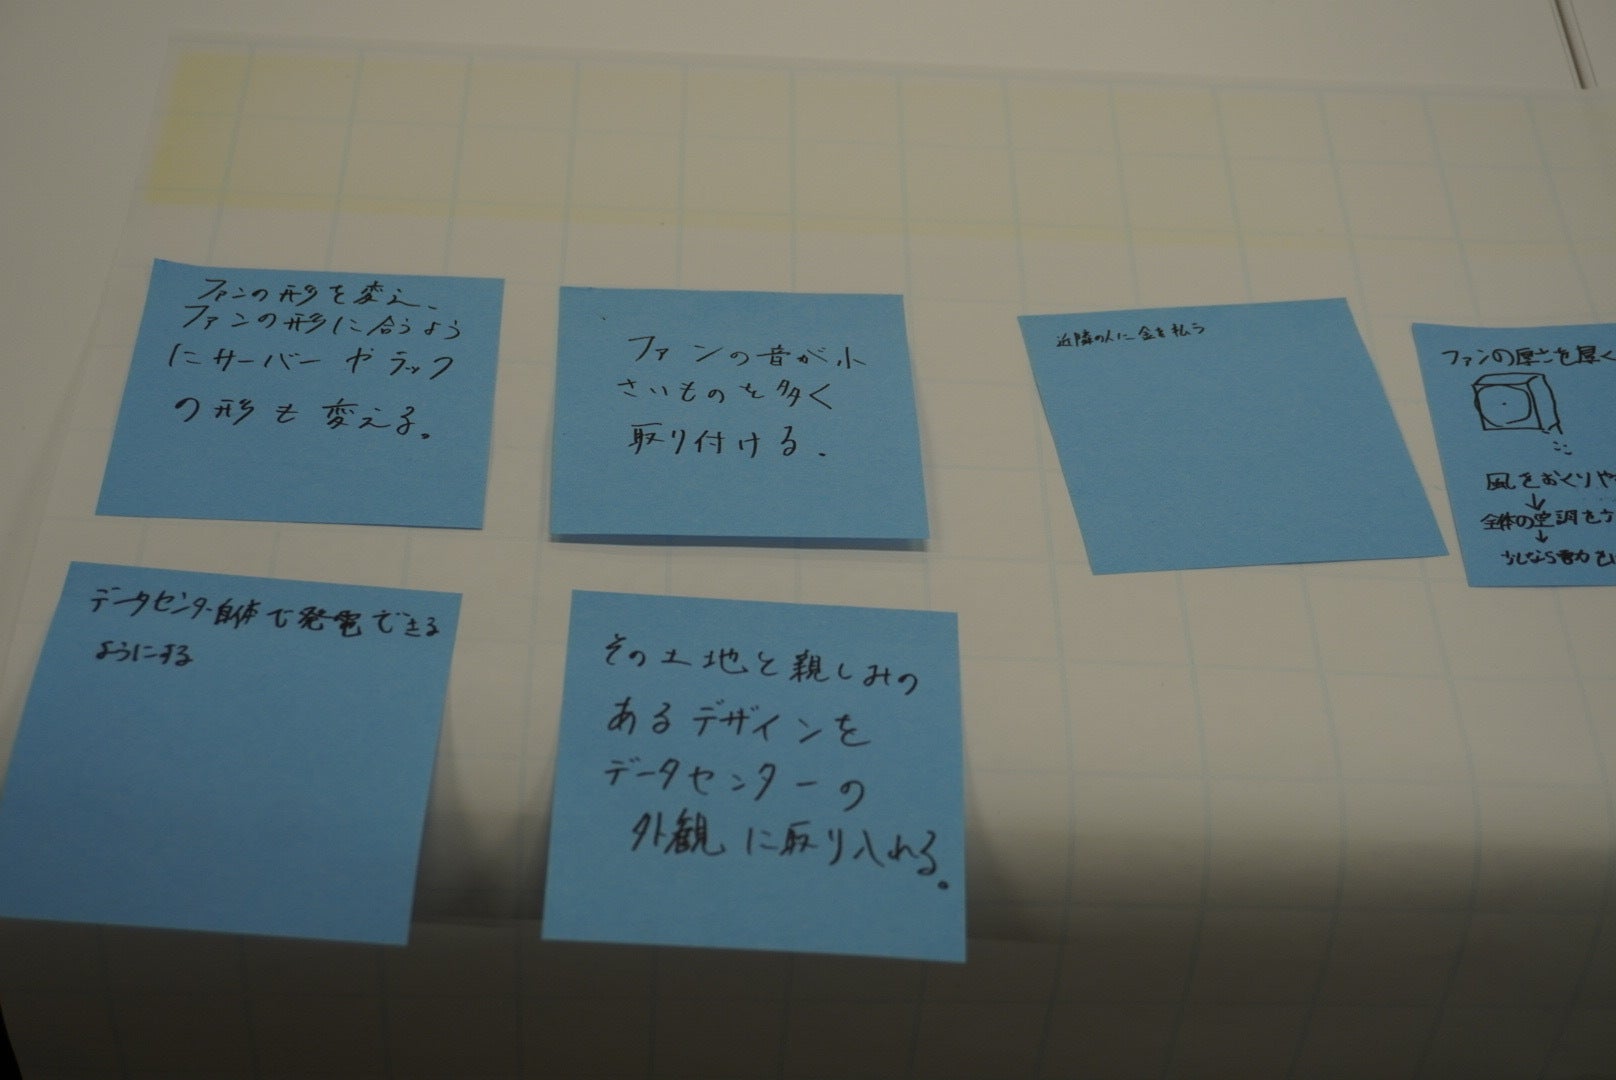 ファンの形を変え、
ファンの形に合うよう
にサーバーやラック
の形も変える。
ファンの音が小
さいものを多く
取り付ける.
近隣の人に金を払う
ファンの厚さを厚く
風をおくりや
↓
全体の空調を
↓
データセンター自体で発電できる
ようにする
その土地と親しみの
あるデザインを
データセンターの
外観に取り入れる。